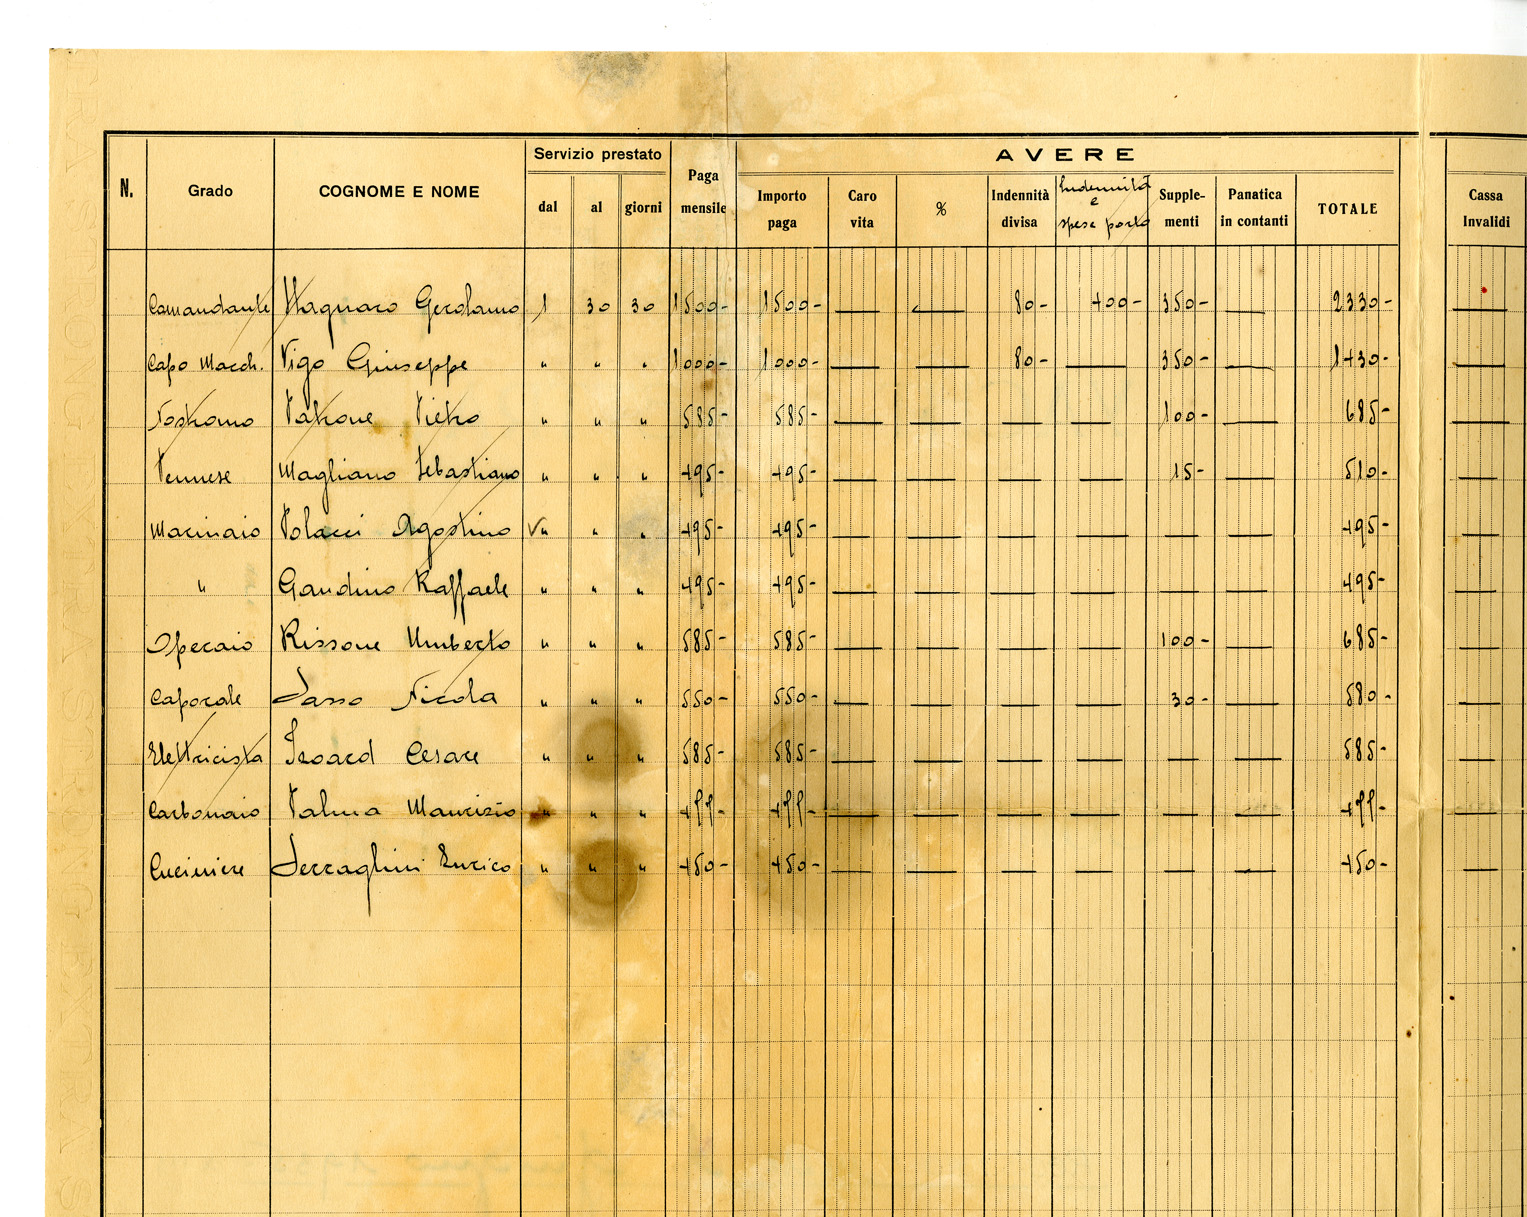 N. Grado COGNOME E NOME Servizio prestato dal al giorni Paga mensile AVERE Importo paga Caro vita % Indennità divisa Indennità e spese posta Supplementi Panatica in contanti TOTALE Cassa Invalidi
Comandante Stagnaro Gerolamo 1 30 30 1500- 1500- — — 80- 400- 350- — 2330- —
Capo Macch. Vigo Giuseppe " " " 1000- 1000- — — 80- — 350- — 1430- —
Nostromo Patrone Pietro " " " 585- 585- — — — — 100- — 685- —
Pennese Magliano Sebastiano " " " 495- 495- — — — — 15- — 510- —
Marinaio Polacci Agostino " " " 495- 495- — — — — — — 495- —
" Gandino Raffaele " " " 495- 495- — — — — — — 495- —
Operaio Rissone Umberto " " " 585- 585- — — — — 100- — 685- —
Caporale Sasso Nicola " " " 550- 550- — — — — 30- — 580- —
Elettricista Isoard Cesare " " " 585- 585- — — — — — — 585- —
Carbonaio Palma Maurizio " " " — — — — — — —
Cuciniere Serraghini Enrico " " " 450- 450- — — — — — — 450- —